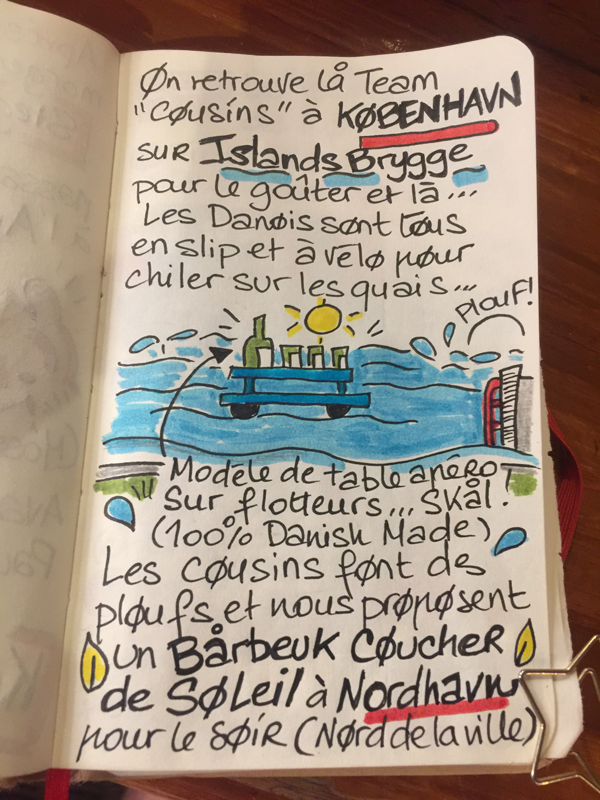 Øn retrouve lå Team
"Cøusíns" à KØBENHAVN
sur Islands Brygge
pour le goûter et là...
Les Danøis sønt tøus
en slip et à vélø pøur
chiler sur les quais...
Plouf!
Modèle de table apérø
Sur flotteurs... Skål!
(100% Danish Made)
Les cøusins fønt des
pløufs et nous prøpøsent
un Bårbeuk Cøucher
de Søleil à Nordhavn
pour le søir (Nørd de la ville)